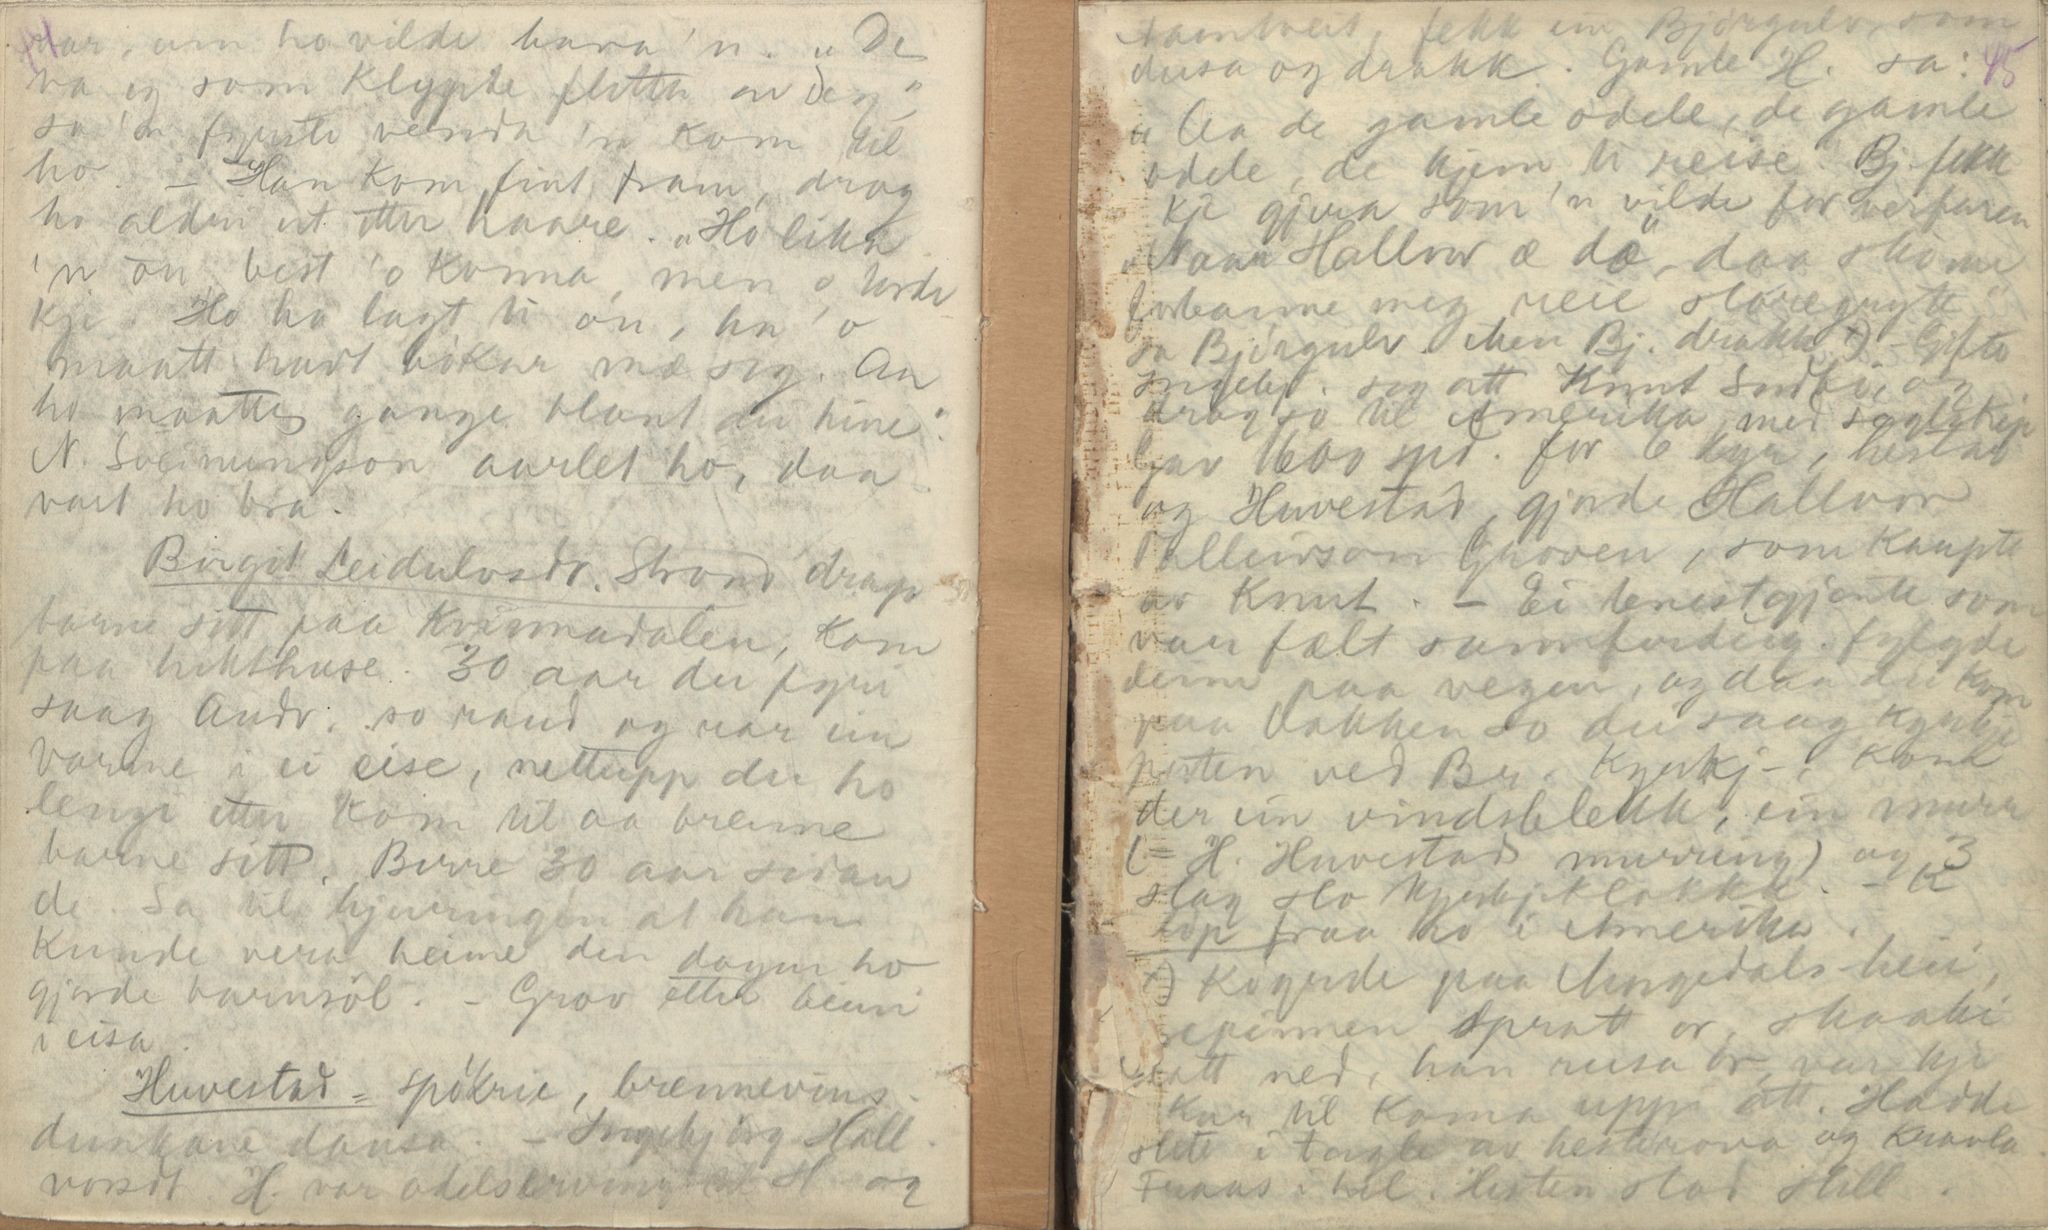 um ho vilde hava 'n. „De
va eg som klypte fletta av deg",
sa 'n fyrste venda 'n kom til
ho. – Han kom fint fram, drog
ho aldri ut etter haare. „Ho lika
'n ou best 'o konna, men o torde
kje. Ho ha lagt ti on, ha 'o
maatt havt vókar mæ seg. Aa
ho maatte gange blant dei hine".
N. Sveinungson aarlet ho, daa
vart ho bra.
Birgit Leidulvsdr. Strond drap
barne sitt paa Kvismadalen, kom
paa tukthuse. 30 aar dei fyri
saag Andr. so raud og rar ein
varme i ei eise, nettupp der ho
lenge etter kom til aa brenne
barne sitt. Birre 30 aar sidan
de. Sa til kjerringen at han
kunde vera heime den dagen ho
gjorde barnsöl. – Grov etter beini
i eisa.
Huvestad = spökrie, brennevins-
dunkane dansa. – Ingebjörg Hall-
vorsdt. H. var odelserving til H. og
fekk ein Bjørgulv som
dusa og drakk. Gamle H. sa: 45
„Aa de gamle odele, de gamle
odele, de kjem ti reise". Bj. fekk
kje gjera som 'n vilde for verfaren
„Naar Hallvor æ dø", daa
meg reie
sa Bjørgulv. Men Bj. drakk +) – Gifte
Ingebj. seg att Knut Sudbö, og
drog so til Amerika med seglskip
Gav 1600 spd. for 6 kyr, hestar
og Huvestad, gjorde Hallvor
Talleivson Groven, som kaupte
av Knut. – Ei tenestgjente som
var fælt sannferdig fylgde
deim paa vegen, og daa dei kom
paa bakken so dei saag kyrkje
ved Br. kyrkj–, kom
der ein vindsblekk, ein murr
(= H. Huvestad murring) og 3
slag slo kyrkjeklokka. –
fraa ho i Amerika.
+) Köyrde paa Aamgedals-heii,
sepinnen spratt or, skaaki
datt ned, han rusa or, var kje
kar til koma upp att. Hadde
slite i tagle av hesterova og kravla
Fraus i hel. Hesten stod still.